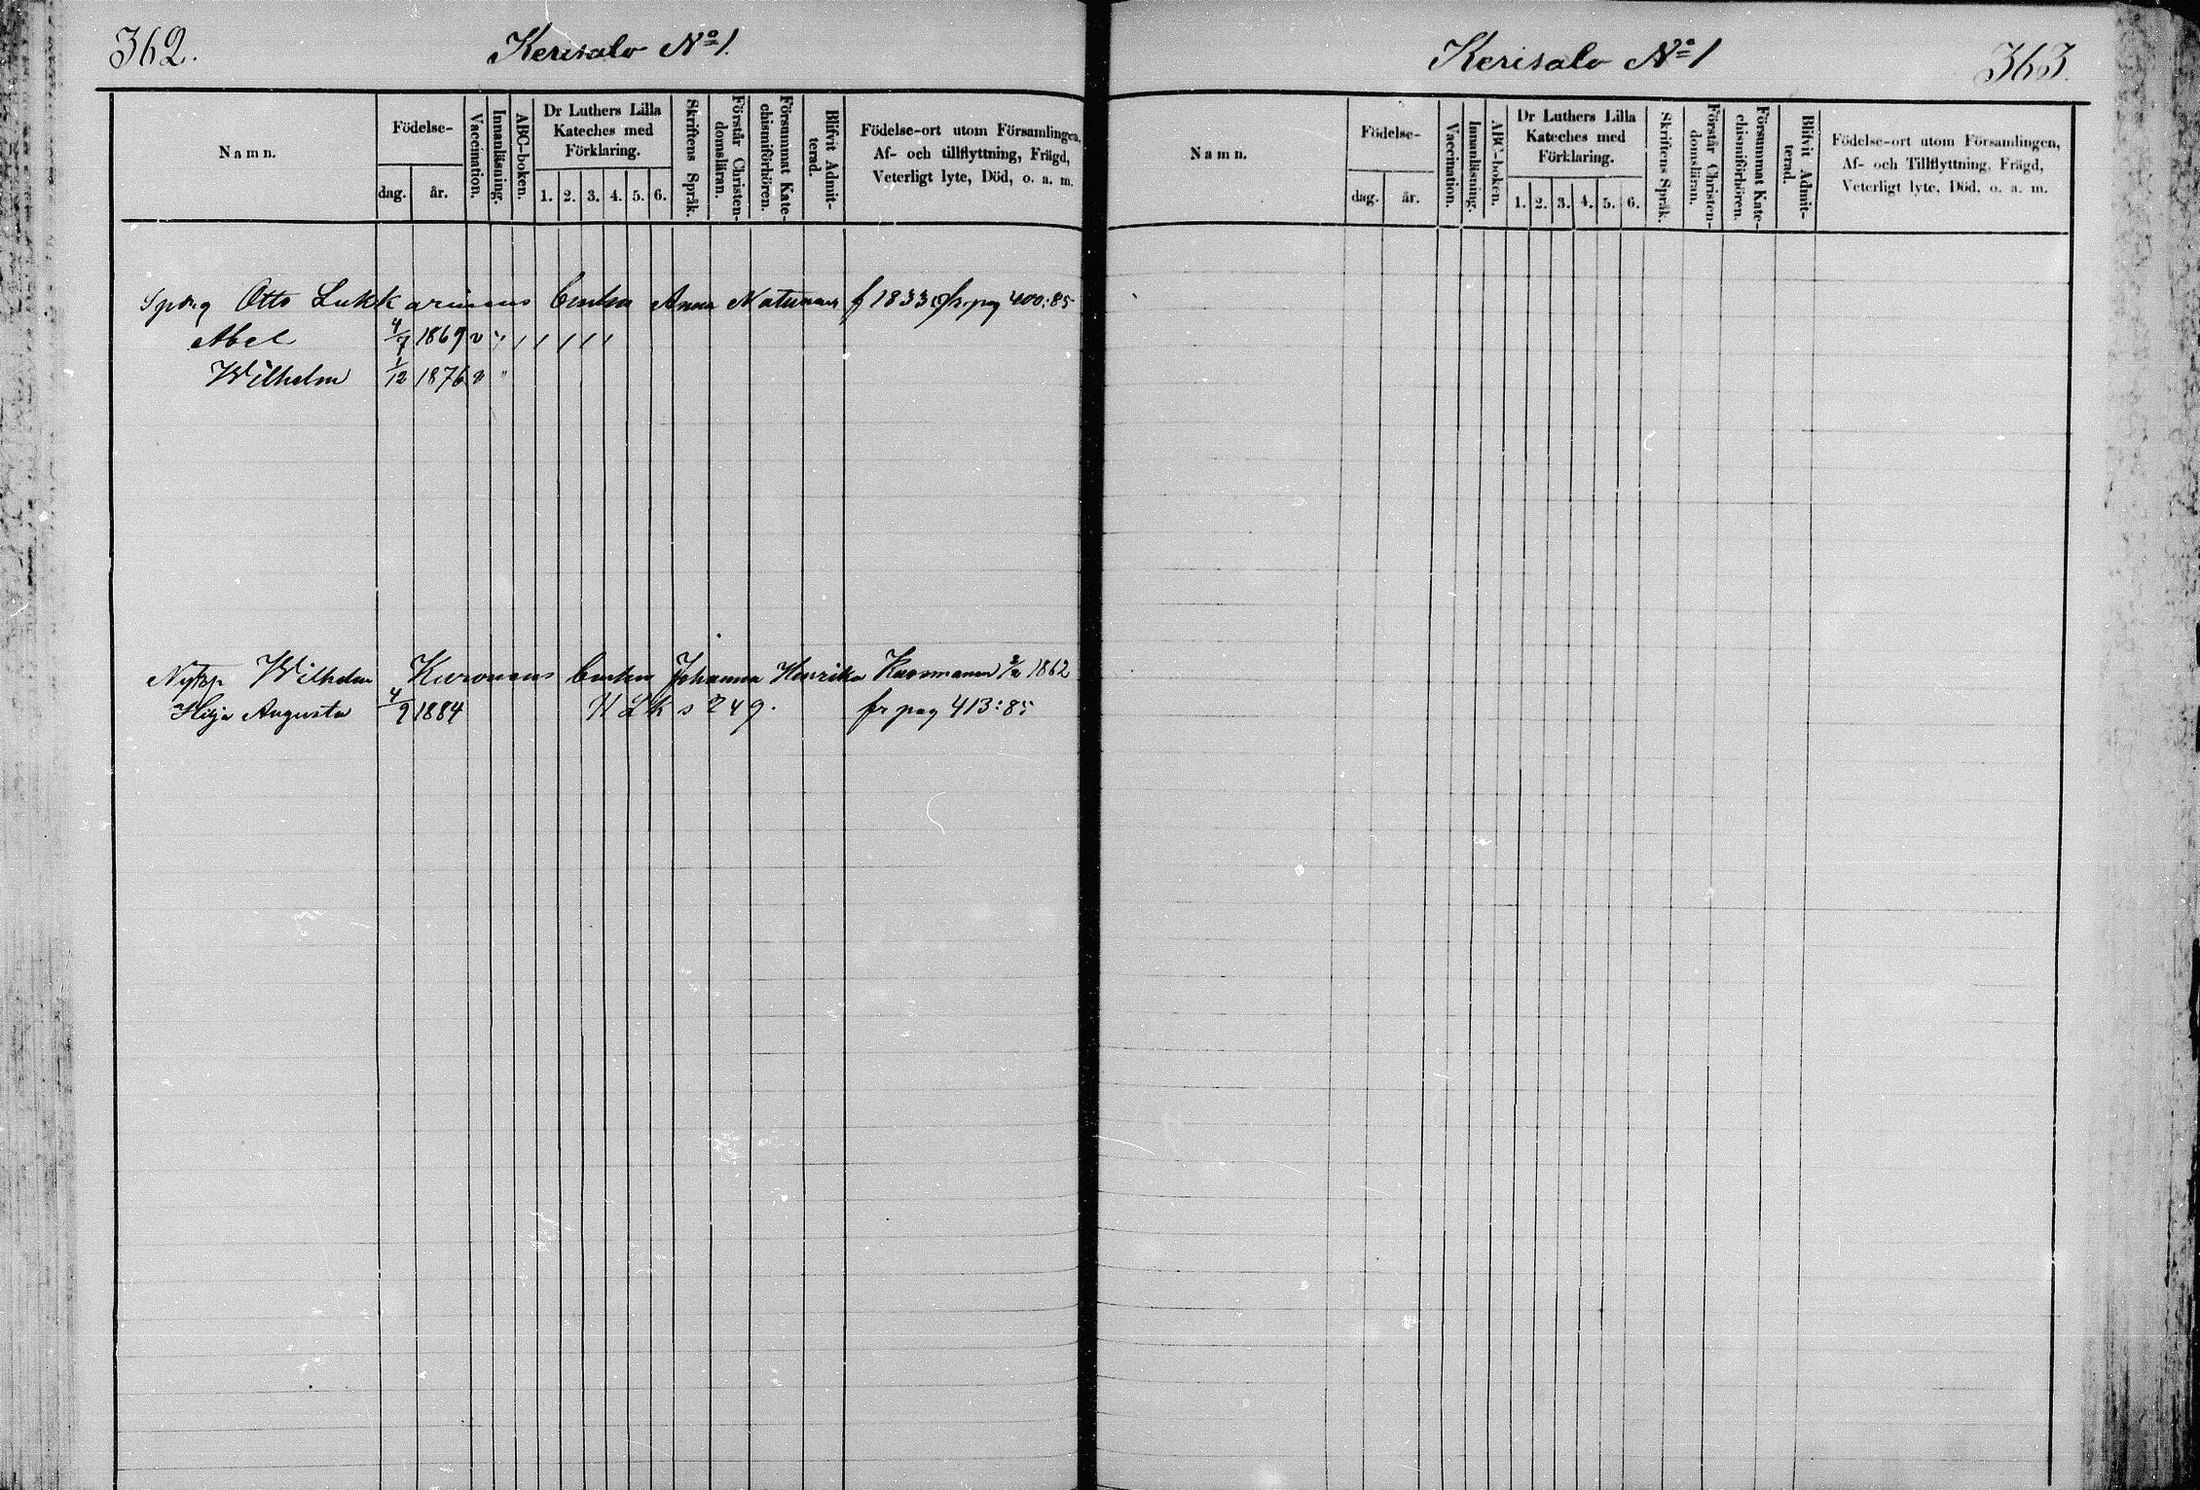 362.
Kerisalo No 1.
Namn.
Födelse-
dag. år.
Vaccination.
Innanläsning.
ABC-boken.
Dr Luthers Lilla
Kateches med
Förklaring.
1. 2. 3. 4. 5. 6.
Skriftens Språk.
Förstår Christen-
domsläran.
Försummat Kate-
chismiförhören.
Blifvit Admit-
terad.
Födelse-ort utom Församlingen,
Af- och tillflyttning, Frägd,
Veterligt lyte, Död, o. a. m.
Otto Lukkarinens Enka Anna f 1833 fr pag 400:85
Abel 4/7 1869 v " / / / / /
Wilhelm 1/12 1876 v "
Wilhelm Kuronens Enka Johanna Henrika 1862
Hilja Augusta 4/9 1884 N L K s 249. fr pag 413:85
Kerisalo No 1
363.
Namn.
Födelse-
dag. år.
Vaccination.
Innanläsning.
ABC-boken.
Dr Luthers Lilla
Kateches med
Förklaring.
1. 2. 3. 4. 5. 6.
Skriftens Språk.
Förstår Christen-
domsläran.
Försummat Kate-
chismiförhören.
Blifvit Admit-
terad.
Födelse-ort utom Församlingen,
Af- och Tillflyttning, Frägd,
Veterligt lyte, Död, o. a. m.